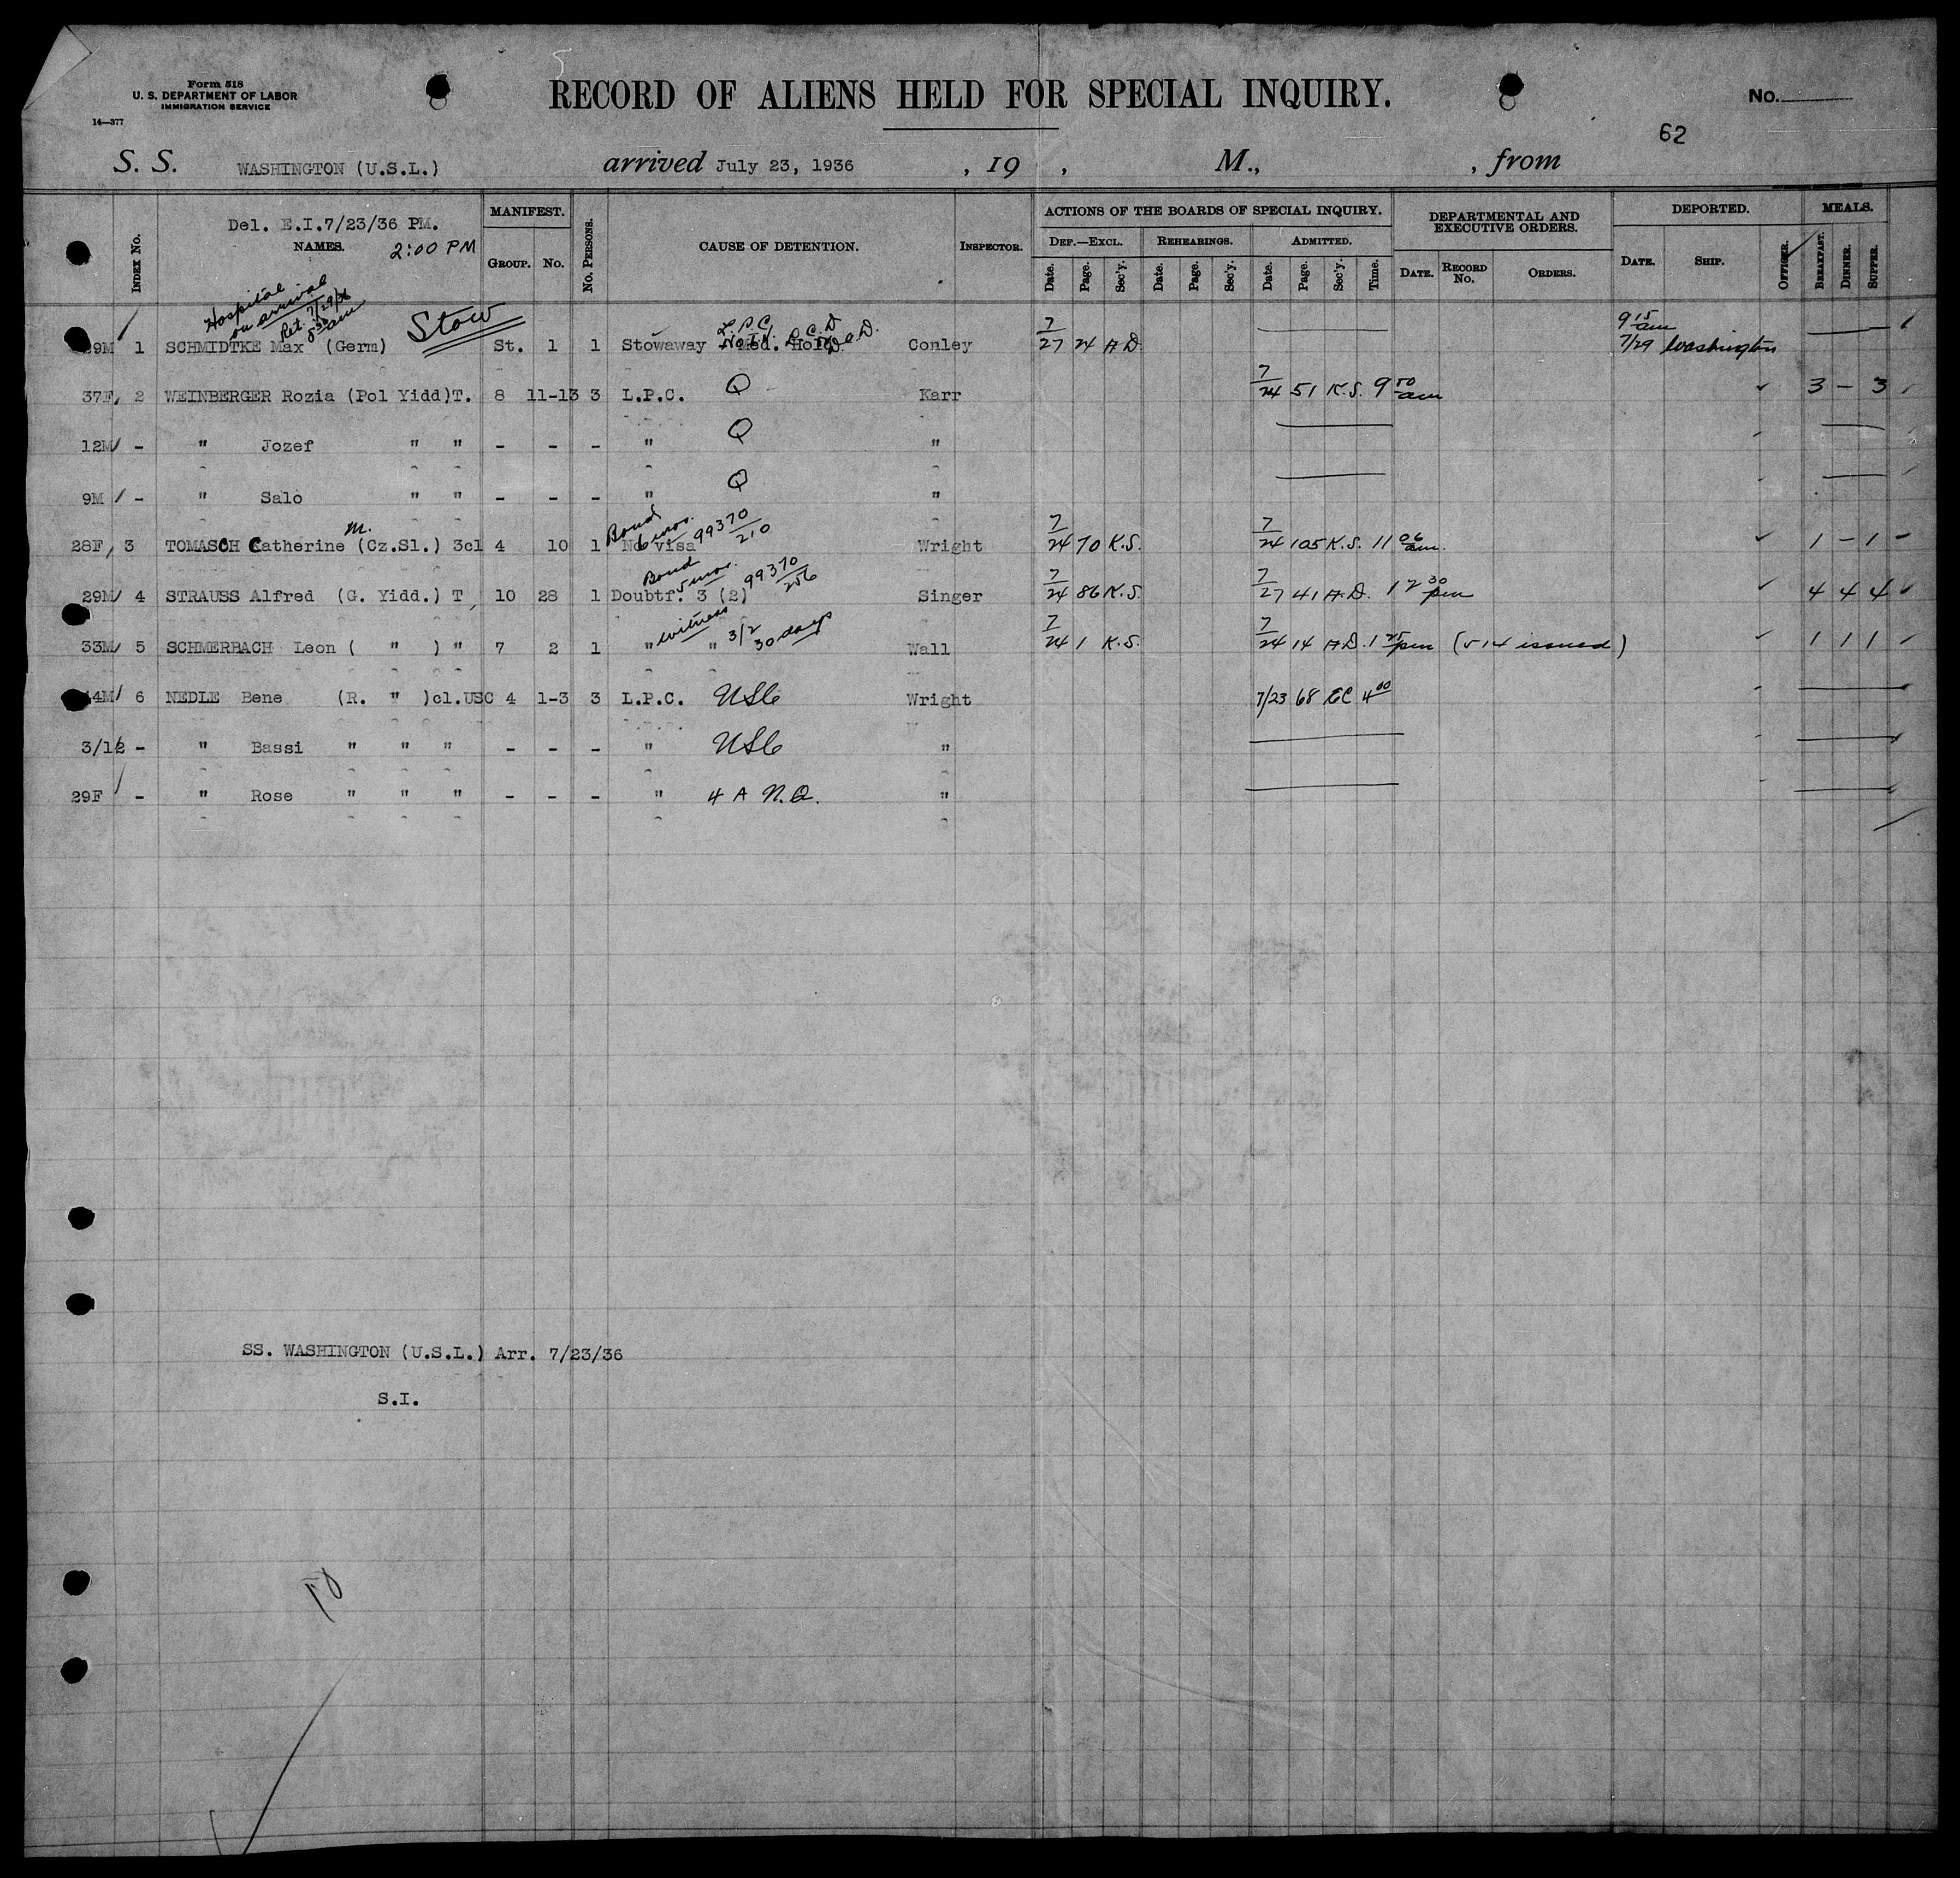 5
Form 518
U. S. DEPARTMENT OF LABOR
IMMIGRATION SERVICE
14—377
RECORD OF ALIENS HELD FOR SPECIAL INQUIRY.
No.
62
S. S. WASHINGTON (U.S.L.) arrived July 23, 1936 , 19 , M., , from
Del. E.I.7/23/36 PM.
2:00 PM
INDEX No. NAMES. MANIFEST. GROUP. No. No. PERSONS. CAUSE OF DETENTION. INSPECTOR.
ACTIONS OF THE BOARDS OF SPECIAL INQUIRY.
DEF.—EXCL. REHEARINGS. ADMITTED.
Date. Page. Sec'y. Date. Page. Sec'y. Date. Page. Sec'y. Time.
DEPARTMENTAL AND EXECUTIVE ORDERS.
DATE. RECORD No. ORDERS.
DEPORTED.
DATE. SHIP. OFFICER.
MEALS.
BREAKFAST. DINNER. SUPPER.
Hospital
on arrival
Ret. 7/29/36
am
Stow
9 15 am
39M 1 SCHMIDTKE Max (Germ) St. 1 1 Stowaway Med. Hold Conley 7/27 24 A D 7/29 Washington
37F 2 WEINBERGER Rozia (Pol Yidd)T. 8 11-13 3 L.P.C. Q Karr 7/24 51 K.S. 9 50 am 3 – 3
12M - " Jozef " " - - - " Q "
9M - " Salo " " - - - " Q "
M.
Bond
6 mos. 99370/210
28F 3 TOMASCH Catherine (Cz.Sl.) 3cl 4 10 1 No visa Wright 7/24 70 K.S. 7/24 105 K.S. 11 06 am. 1 – 1
Bond
5 mos. 99370/256
29M 4 STRAUSS Alfred (G. Yidd.) T 10 28 1 Doubtf. 3 (2) Singer 7/24 86 K.S. 7/27 41 A.D. 12 30 pm 4 4 4
witness
3/2
30 days
33M 5 SCHMERBACH Leon ( " ) " 7 2 1 " " Wall 7/24 1 K.S. 7/24 14 A.D. 1 25 pm (514 issued) 1 1 1
44M 6 NEDLE Bene (R. " )cl.USC 4 1-3 3 L.P.C. USC Wright 7/23 68 EC 4 00
3/12 - " Bassi " " " - - - " USC "
29F - " Rose " " " - - - " 4 A N.Q. "
SS. WASHINGTON (U.S.L.) Arr. 7/23/36
S.I.